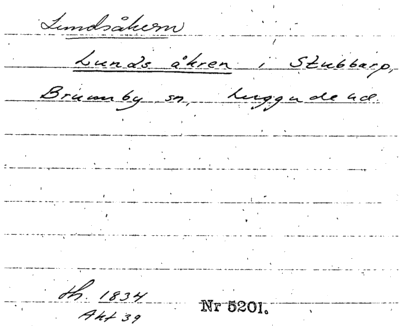 Lundsåkern
Lunds åkren i Stubbarp,
Brunnby sn, Luggude hd.
th. 1834
Akt 39
Nr 5201.